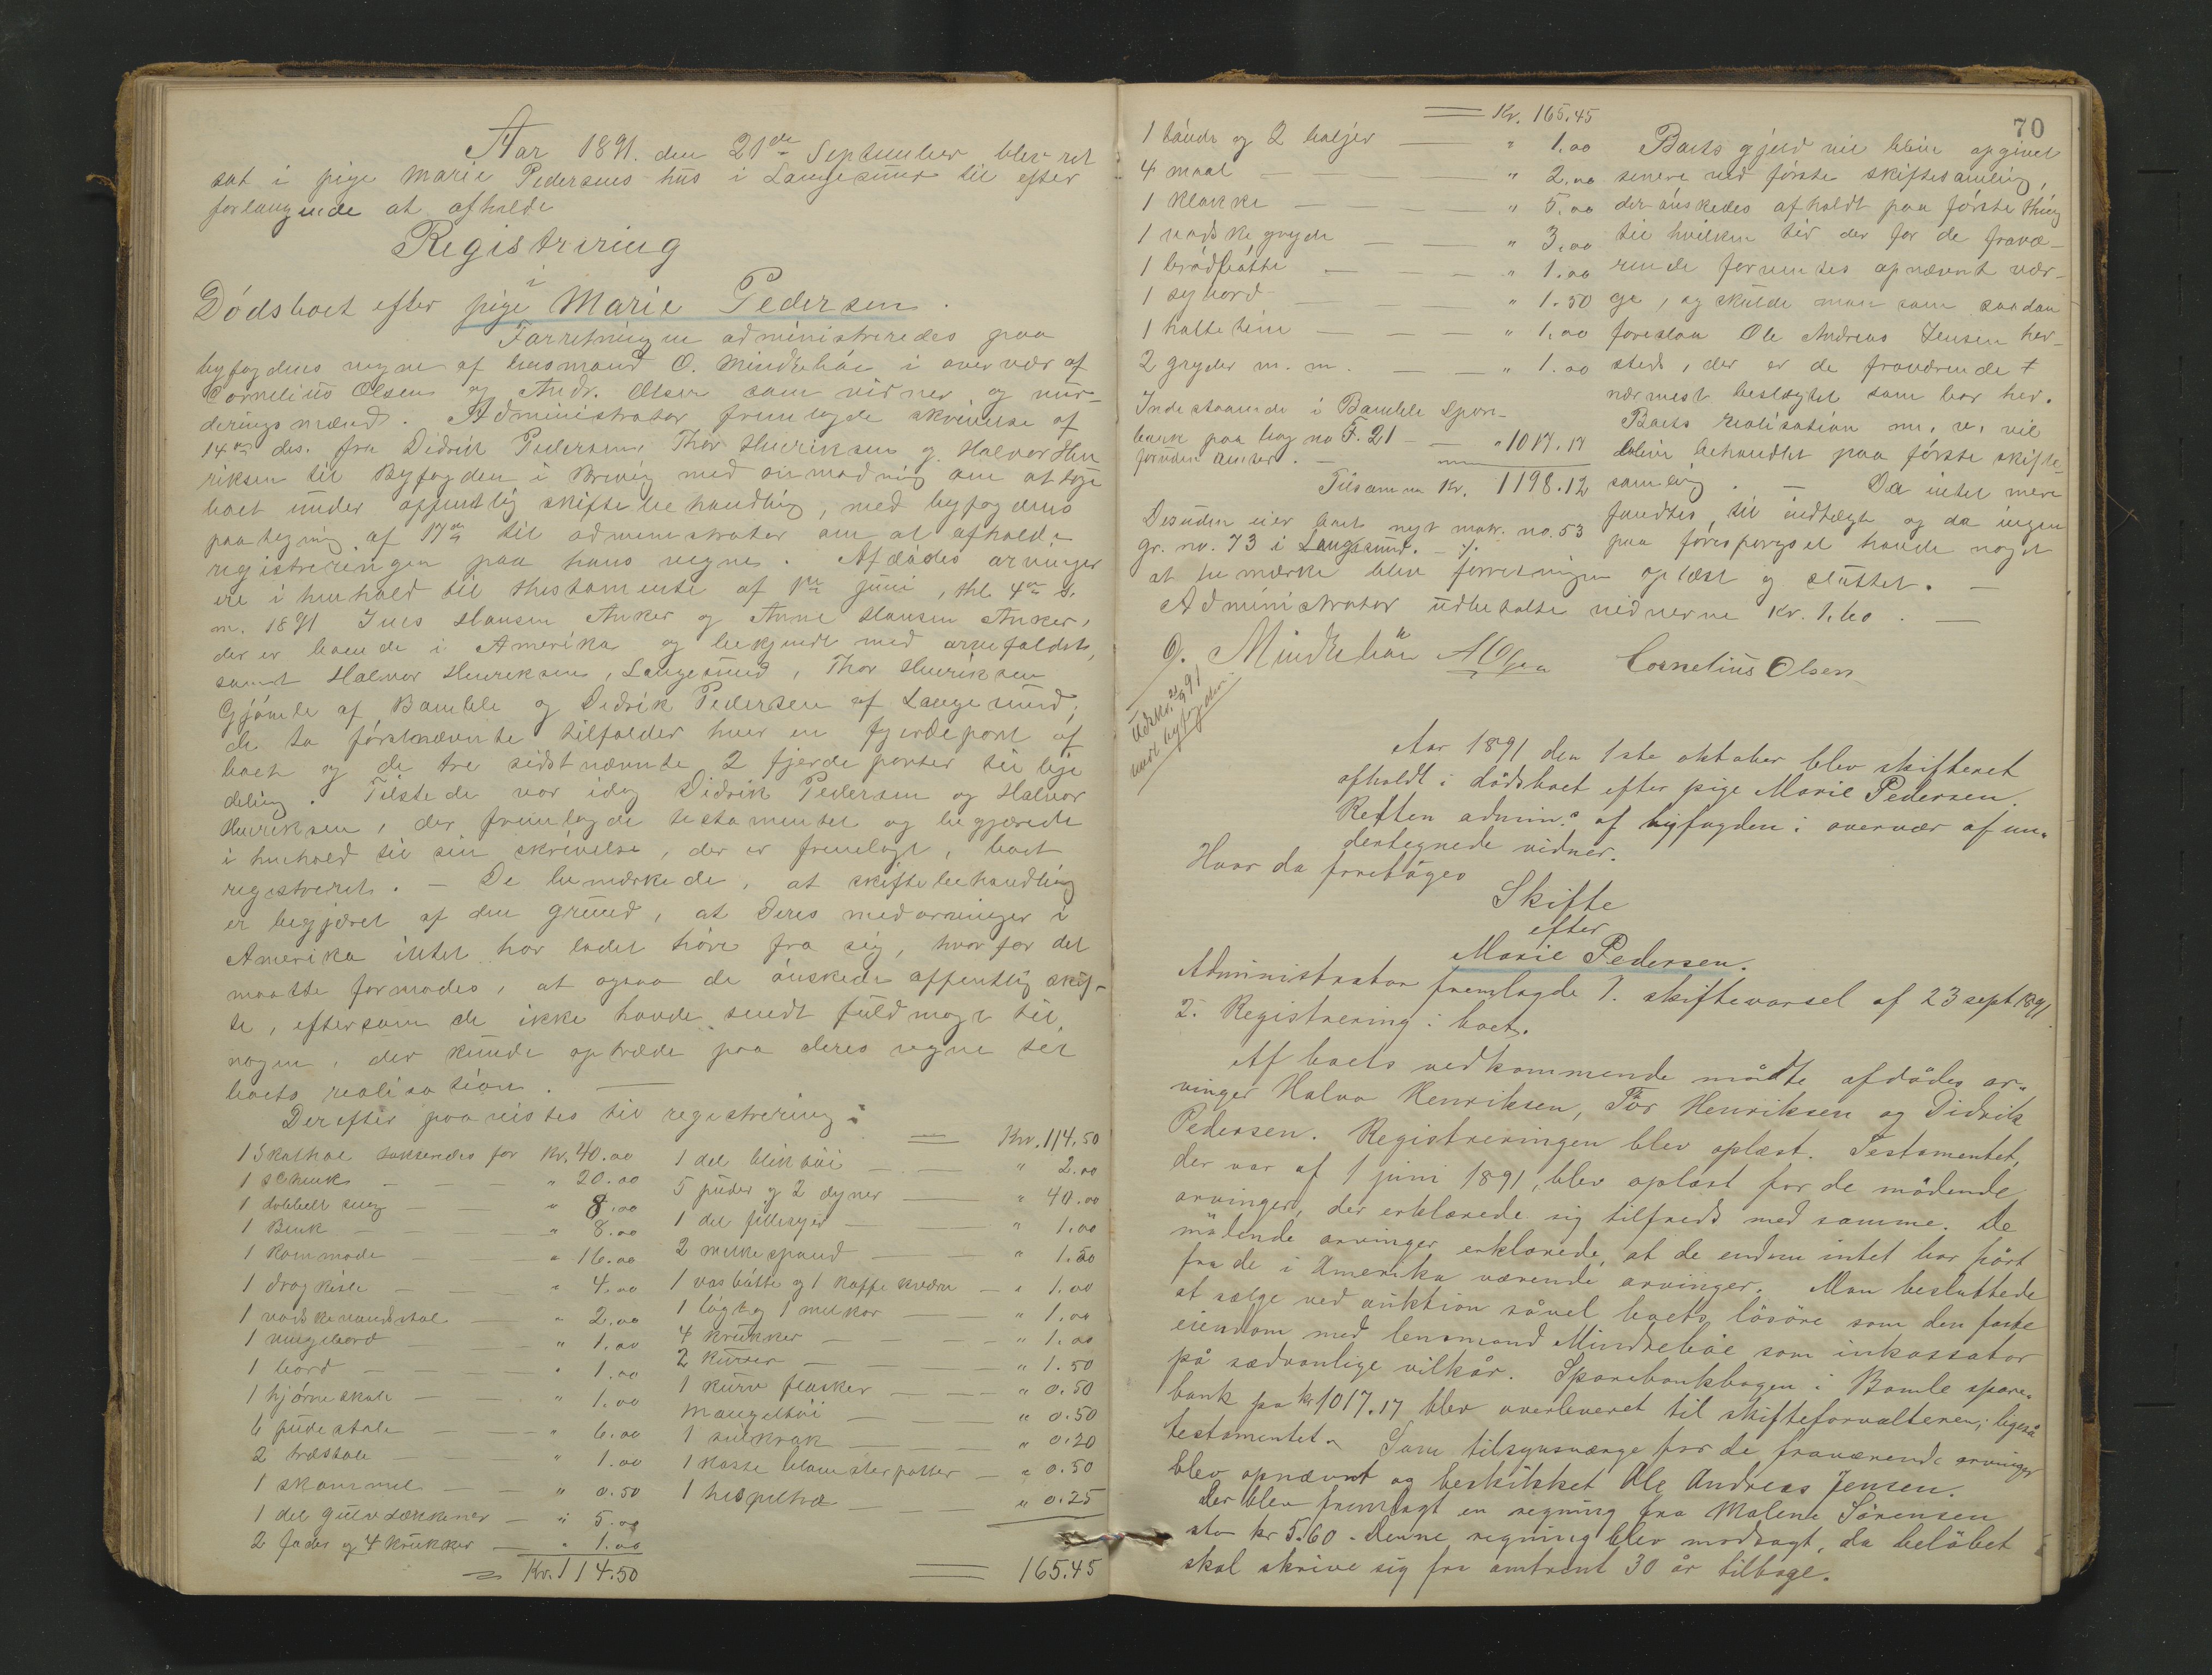 Aar 1891. den 21de September blev ret
sat i pige Marie Pedersens hus i Langesund til efter
forlangende at afholde
Registrering
i
Dödsboet efter pige Marie Pedersen.
Forretningen administreredes paa
byfogdens vegne af lensmand O. Mindrebóe i overvær af
Cornelius Olsen og Andr. Olsen som vidner og vur-
deringsmænd. Administrator fremlagde skrivelse af
14de ds. fra Didrik Pedersen, Thor Henriksen og Halvor Hen
riksen til Byfogden i Brevig med anmodning om at tage
boet under offentlig skiftebehandling, med byfogdens
paategning af 17de til administrator om at afholde
registreringen paa hans vegne. Afdödes arvinger
ere i henhold til thestamente af 1ste juni, thl. 4de s.
m. 1891 Jens Hansen Anker og Anne Hansen Anker,
der er boende i Amerika og bekjendt med arvefaldet,
samt Halvor Henriksen, Langesund, Thor Henriksen
Gjömle af Bamble og Didrik Pedersen af Langesund;
de to förstnævnte tilfalder hver en fjerdepart af
boet og de tre sidstnævnte 2 fjerdeparter til lige
deling. Tilstede var idag Didrik Pedersen og Halvor
Henriksen, der fremlagde testamentet og begjærede
i henhold til sin skrivelse, der er fremlagt, boet
registreret. – De bemærkede, at skiftebehandling
er begjæret af den grund, at deres medarvinger i
Amerika intet har ladet höre fra sig, hvorfor det
maatte formodes, at ogsaa de önskede offentlig skif-
te, eftersom de ikke havde sendt fuldmagt til
nogen, der kunde optræde paa deres vegne ved
boets realisation. —
Derefter paavistes til registrering:
1 Skathol taksendes for Kr. 40.00
1 schenk — — — " 20.00
1 dobbelt seng — — " 8.00
1 Benk — — " 8.00
1 Kommode — — " 16.00
1 dragkiste — — " 4.00
1 vaskevandsstol — " 2.00
1 vingebord — — " 1.00
1 bord — — — " 1.00
1 hjörneskab — — " 1.00
6 pudestole — — " 6.00
2 træstole — — " 1.00
1 skammel — — " 0.50
1 del gulvdækkener — " 5.00
2 fade og 4 krukker — " 1.00
Kr. 114.50
— Kr. 114.50
1 del bliktöi — — " 2.00
5 puder og 2 dyner — " 40.00
1 del filleryer — " 1.00
2 melkespand — — " 1.00
1 vasbötte og 1 kaffekværn — " 1.00
1 lögt og 1 melkar — " 1.00
4 krukker — — " 1.00
2 kurver — " 1.50
1 kurv flasker — — " 0.50
Mangeltöi — — " 0.50
1 — — " 0.20
1 kasse blomsterpotter — " 0.50
1 hespetræ — — " 0.25
165.45
70
Kr. 165.45
1 tönde og 2 baljer — " 1.00
4 maal — — — " 2.00
1 klokke — — — " 5.00
1 vaskegryde — — " 3.00
1 brödbötte — — " 1.00
1 sybord — — " 1.50
1 hatteteine — — " 1.00
2 gryder m. m. — — " 1.00
Indestaaende i Bamble Spare-
bank paa bog no F. 21 — — " 1017.17
foruden renter. —
Tilsammen Kr. 1198.12
Desuden eier boet nyt matr. no. 53
gr. no. 73 i Langesund. –
Boets gjeld vil blive opgivet
senere ved förste skiftesamling,
der önskedes afholdt paa förste thing
til hvilken tid der for de fravæ-
rende forventes opnævnt vær-
ge, og skulde man som saadan
foreslaa Ole Andreas Jensen her-
steds, der er de fraværende
nærmest beslægtet som bor her.
Boets realisation m. v. vil
blive behandlet paa förste skifte-
samling. — Da intet mere
fandtes til indtægt og da ingen
paa forespörgsel havde noget
at bemærke blev forretningen oplæst og sluttet. —
Administrator udbetalte vidnerne kr. 1.60. —
O. Mindrebóe AOlsen Cornelius Olsen
Udskr. 21/9 91
medt byfogden.
Aar 1891 den 1ste oktober blev skifteret
afholdt i dödsboet efter pige Marie Pedersen.
Retten admin.s af byfogden i overvær af un-
dertegnede vidner.
Hvor da foretages
Skifte
efter
Marie Pedersen.
Administrator fremlagde 1. skiftevarsel af 23 sept. 1891.
2. Registrering i boet.
Af boets vedkommende mödte afdödes ar-
vinger Halvor Henriksen, Tor Henriksen og Didrik
Pedersen. Registreringen blev oplæst. Testamentet,
der var af 1 juni 1891, blev oplæst for de mödende
arvinger, der erklærede sig tilfreds med samme. De
mödende arvinger erklærede, at de endnu intet har hört
fra de i Amerika værende arvinger. Man besluttede
at sælge ved auktion såvel boets lösöre som den faste
eiendom med lensmand Mindreböe som inkassator
på sædvanlige vilkår. Sparebankbogen i Bamle spare-
bank på kr 1017.17 blev overleveret til skifteforvalteren; ligeså
testamentet. Som tilsynsværge for de fraværende arvinger
blev opnævnt og beskikket Ole Andreas Jensen.
Der blev fremlagt en regning fra Malene Sörensen
stor kr 5.60. Denne regning blev modsagt, da belöbet
skal skrive sig fra omtrent 30 år tilbage.